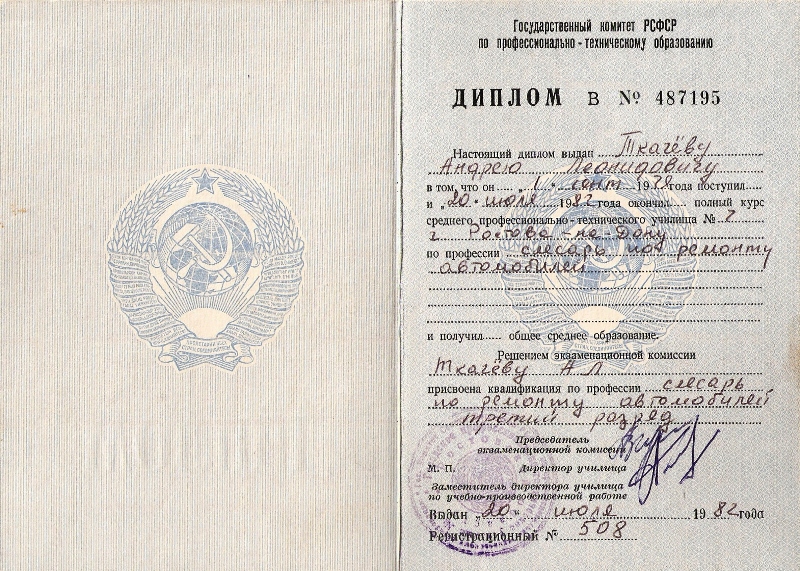 Государственный комитет РСФСР
по профессионально-техническому образованию
ДИПЛОМ В № 487195
Настоящий диплом выдан Ткачёву
Андрею Леонидовичу
в том, что он „1“ сент 1979 года поступил
и „20“ июля 1982 года окончил полный курс
среднего профессионально-технического училища № 7
г Ростова-на-Дону
по профессии слесарь по ремонту
автомобилей
и получил общее среднее образование.
Решением экзаменационной комиссии
Ткачёву А Л
присвоена квалификация по профессии слесарь
по ремонту автомобилей
третий разряд
Председатель
экзаменационной комиссии
М. П. Директор училища
Заместитель директора училища
по учебно-производственной работе
Выдан „20“ июля 1982 года
Регистрационный № 508